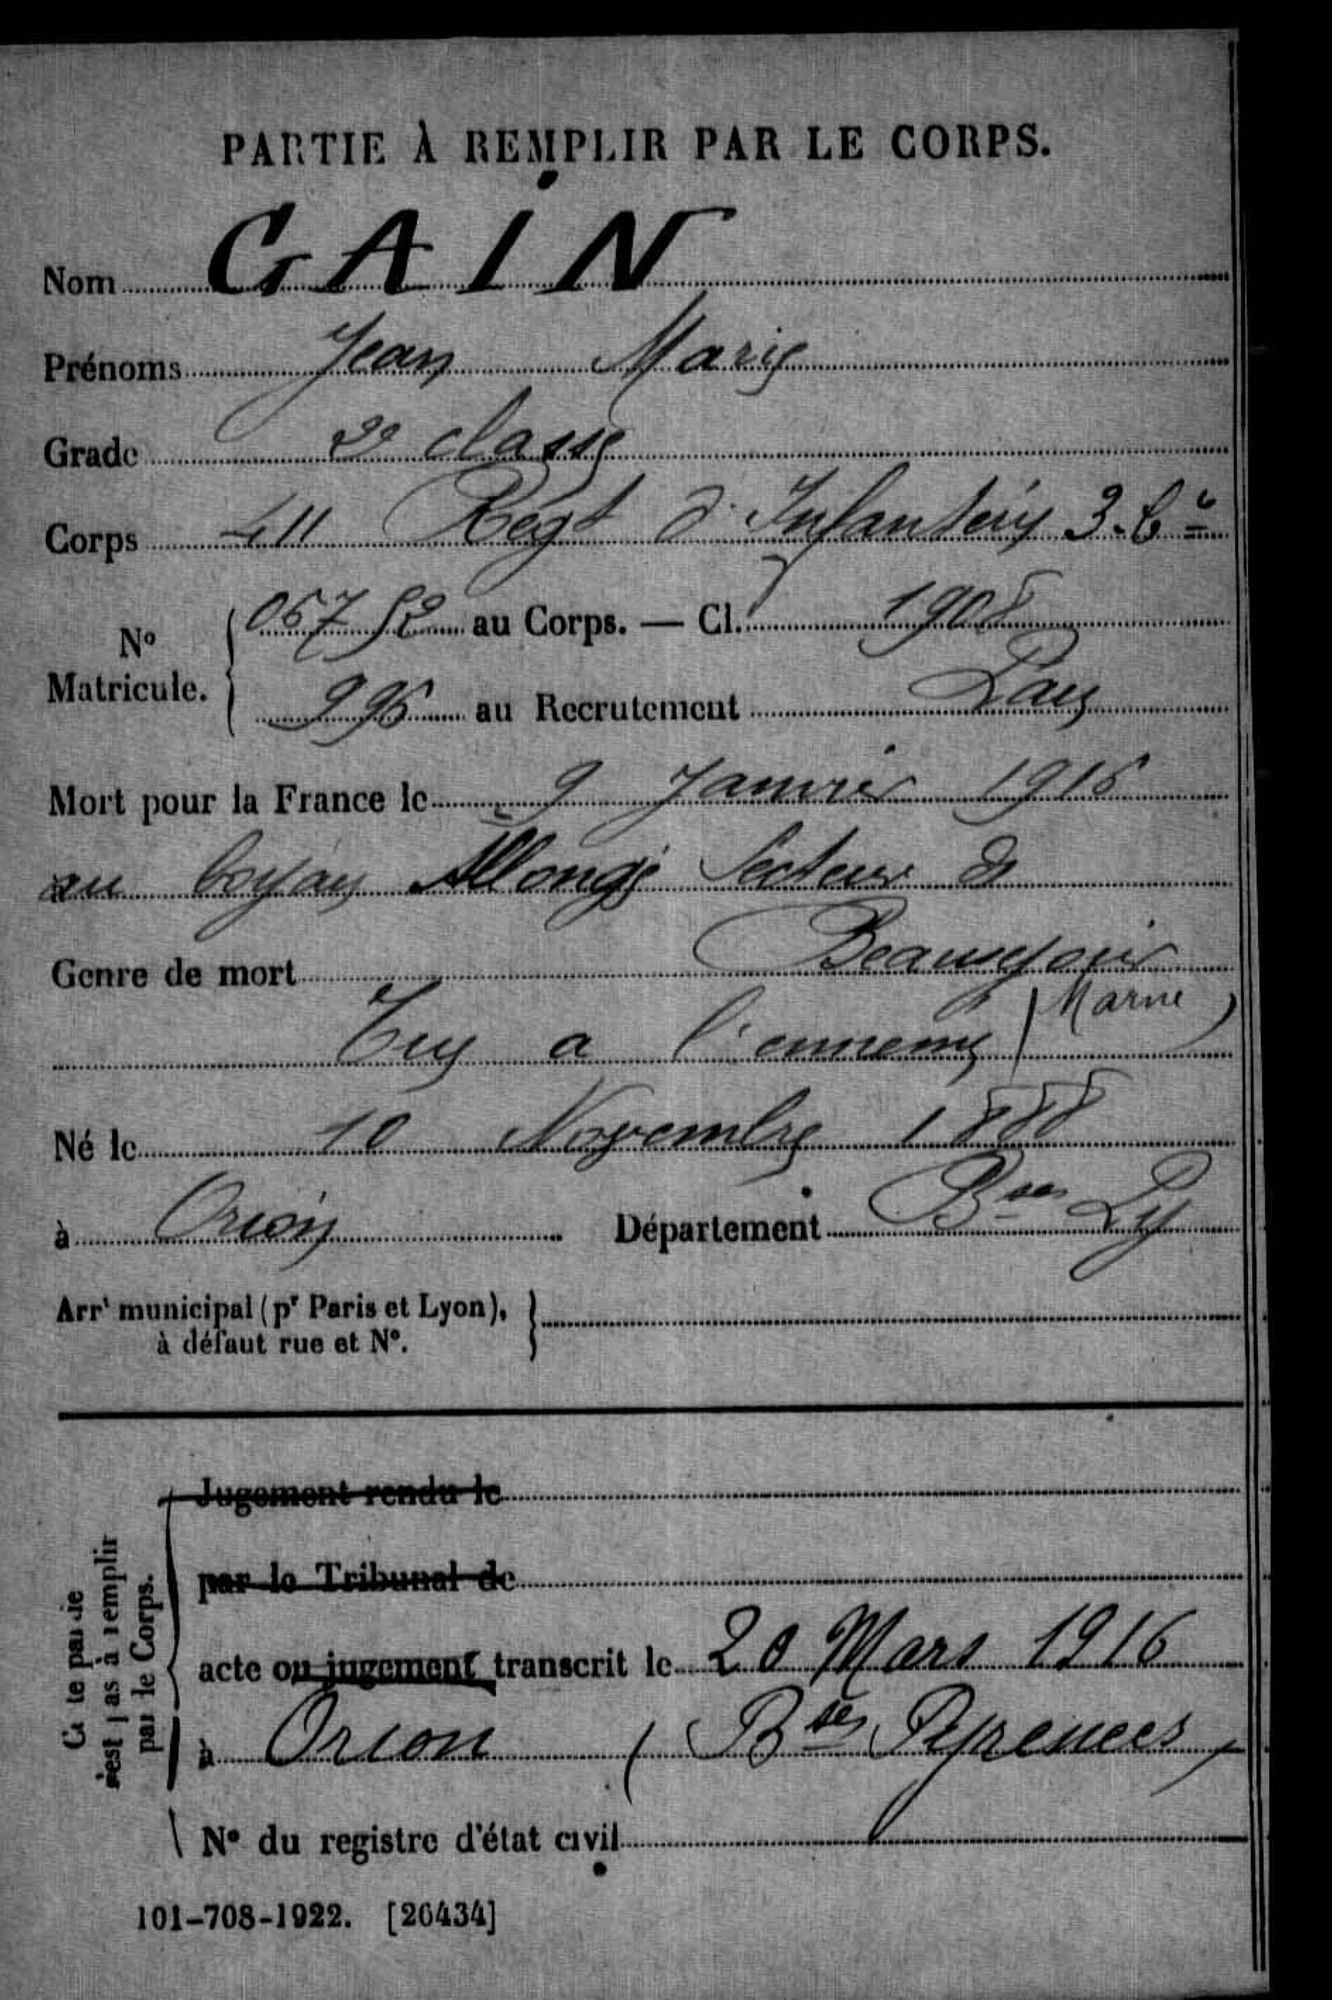 PARTIE À REMPLIR PAR LE CORPS.
Nom GAIN
Prénoms Jean Marie
Grade 2e classe
Corps 411 Régt d'Infanterie 3. Cie
No Matricule. 06752 au Corps. — Cl. 1908
996 au Recrutement Pau
Mort pour la France le 9 Janvier 1916
au boyau Allongé Secteur de
Beauséjour
Genre de mort
(Marne)
Tué a l'ennemi
Né le 10 Novembre 1888
à Orion Département Bses Py
Arrt municipal (pr Paris et Lyon),
à défaut rue et No.
Cette partie
n'est pas à remplir
par le Corps.
Jugement rendu le
par le Tribunal de
acte ou jugement transcrit le 20 Mars 1916
à Orion (Bses Pyrenees)
No du registre d'état civil
101-708-1922. [26434]